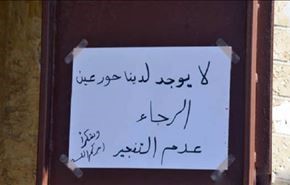 لا يوجد لدينا حور عين
الرجاء
عدم التفجير
وشكراً